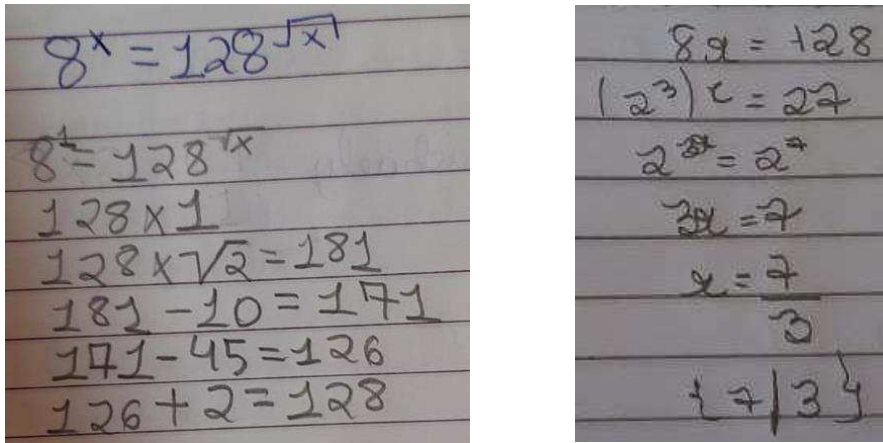 8^x = 128^√x
8^1 = 128^√x
128 × 1
128 × √2 = 181
181 - 10 = 171
171 - 45 = 126
126 + 2 = 128
8x = 128
(2^3)x = 27
2^3x = 2^7
3x = 7
x = 7/3
{7|3}